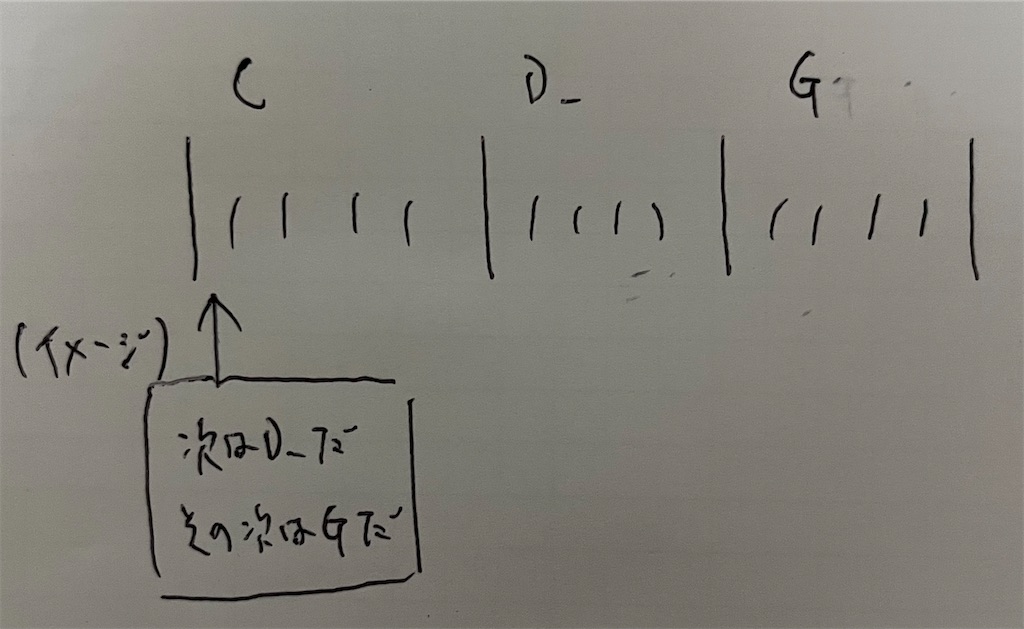 C D- G
(イメージ)
次はD-だ
その次はGだ